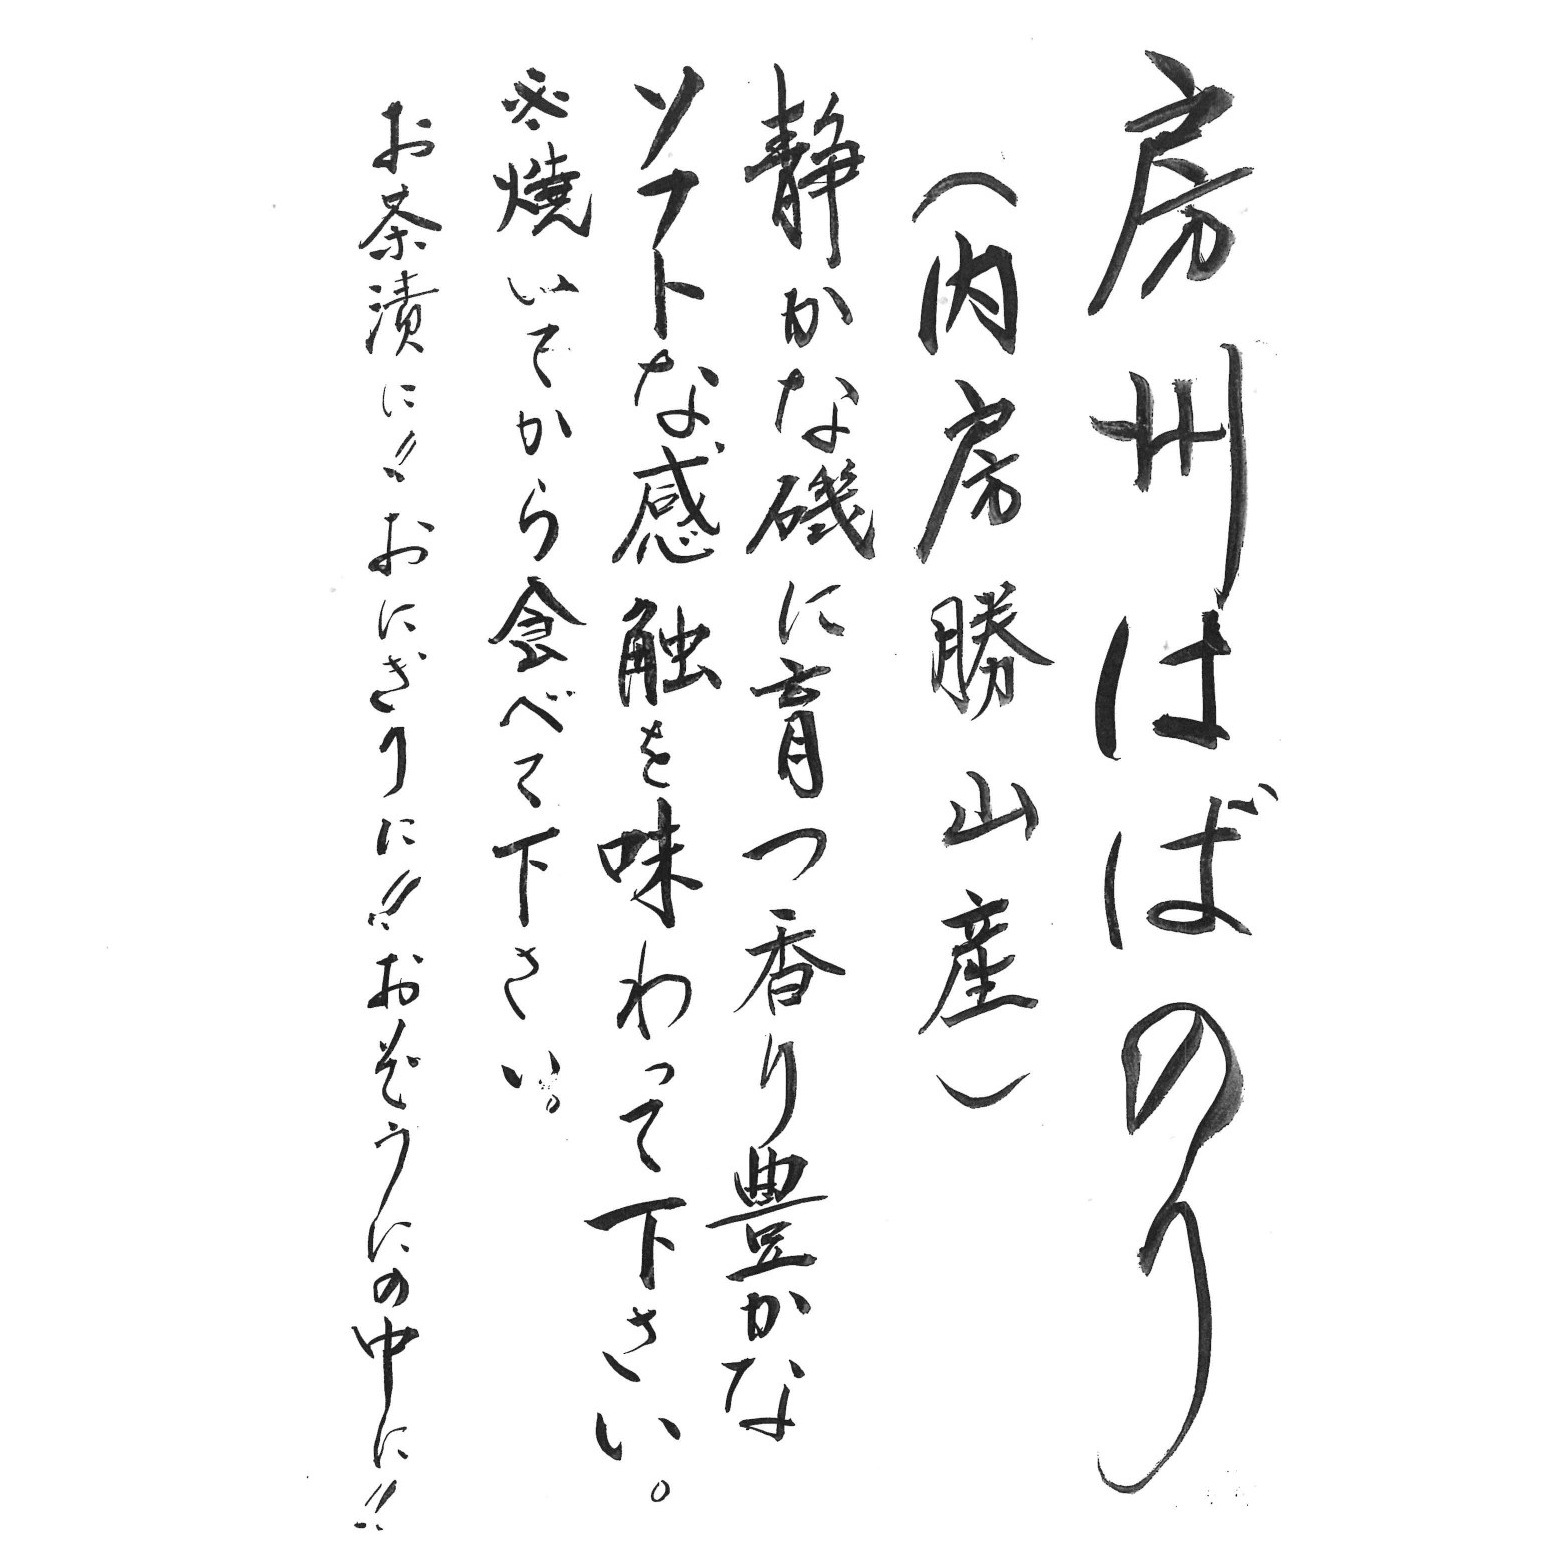 房州はばのり
（内房勝山産）
静かな磯に育つ香り豊かな
ソフトな感触を味わって下さい。
※焼いてから食べて下さい。
お茶漬に!!おにぎりに!!おぞうにの中に!!